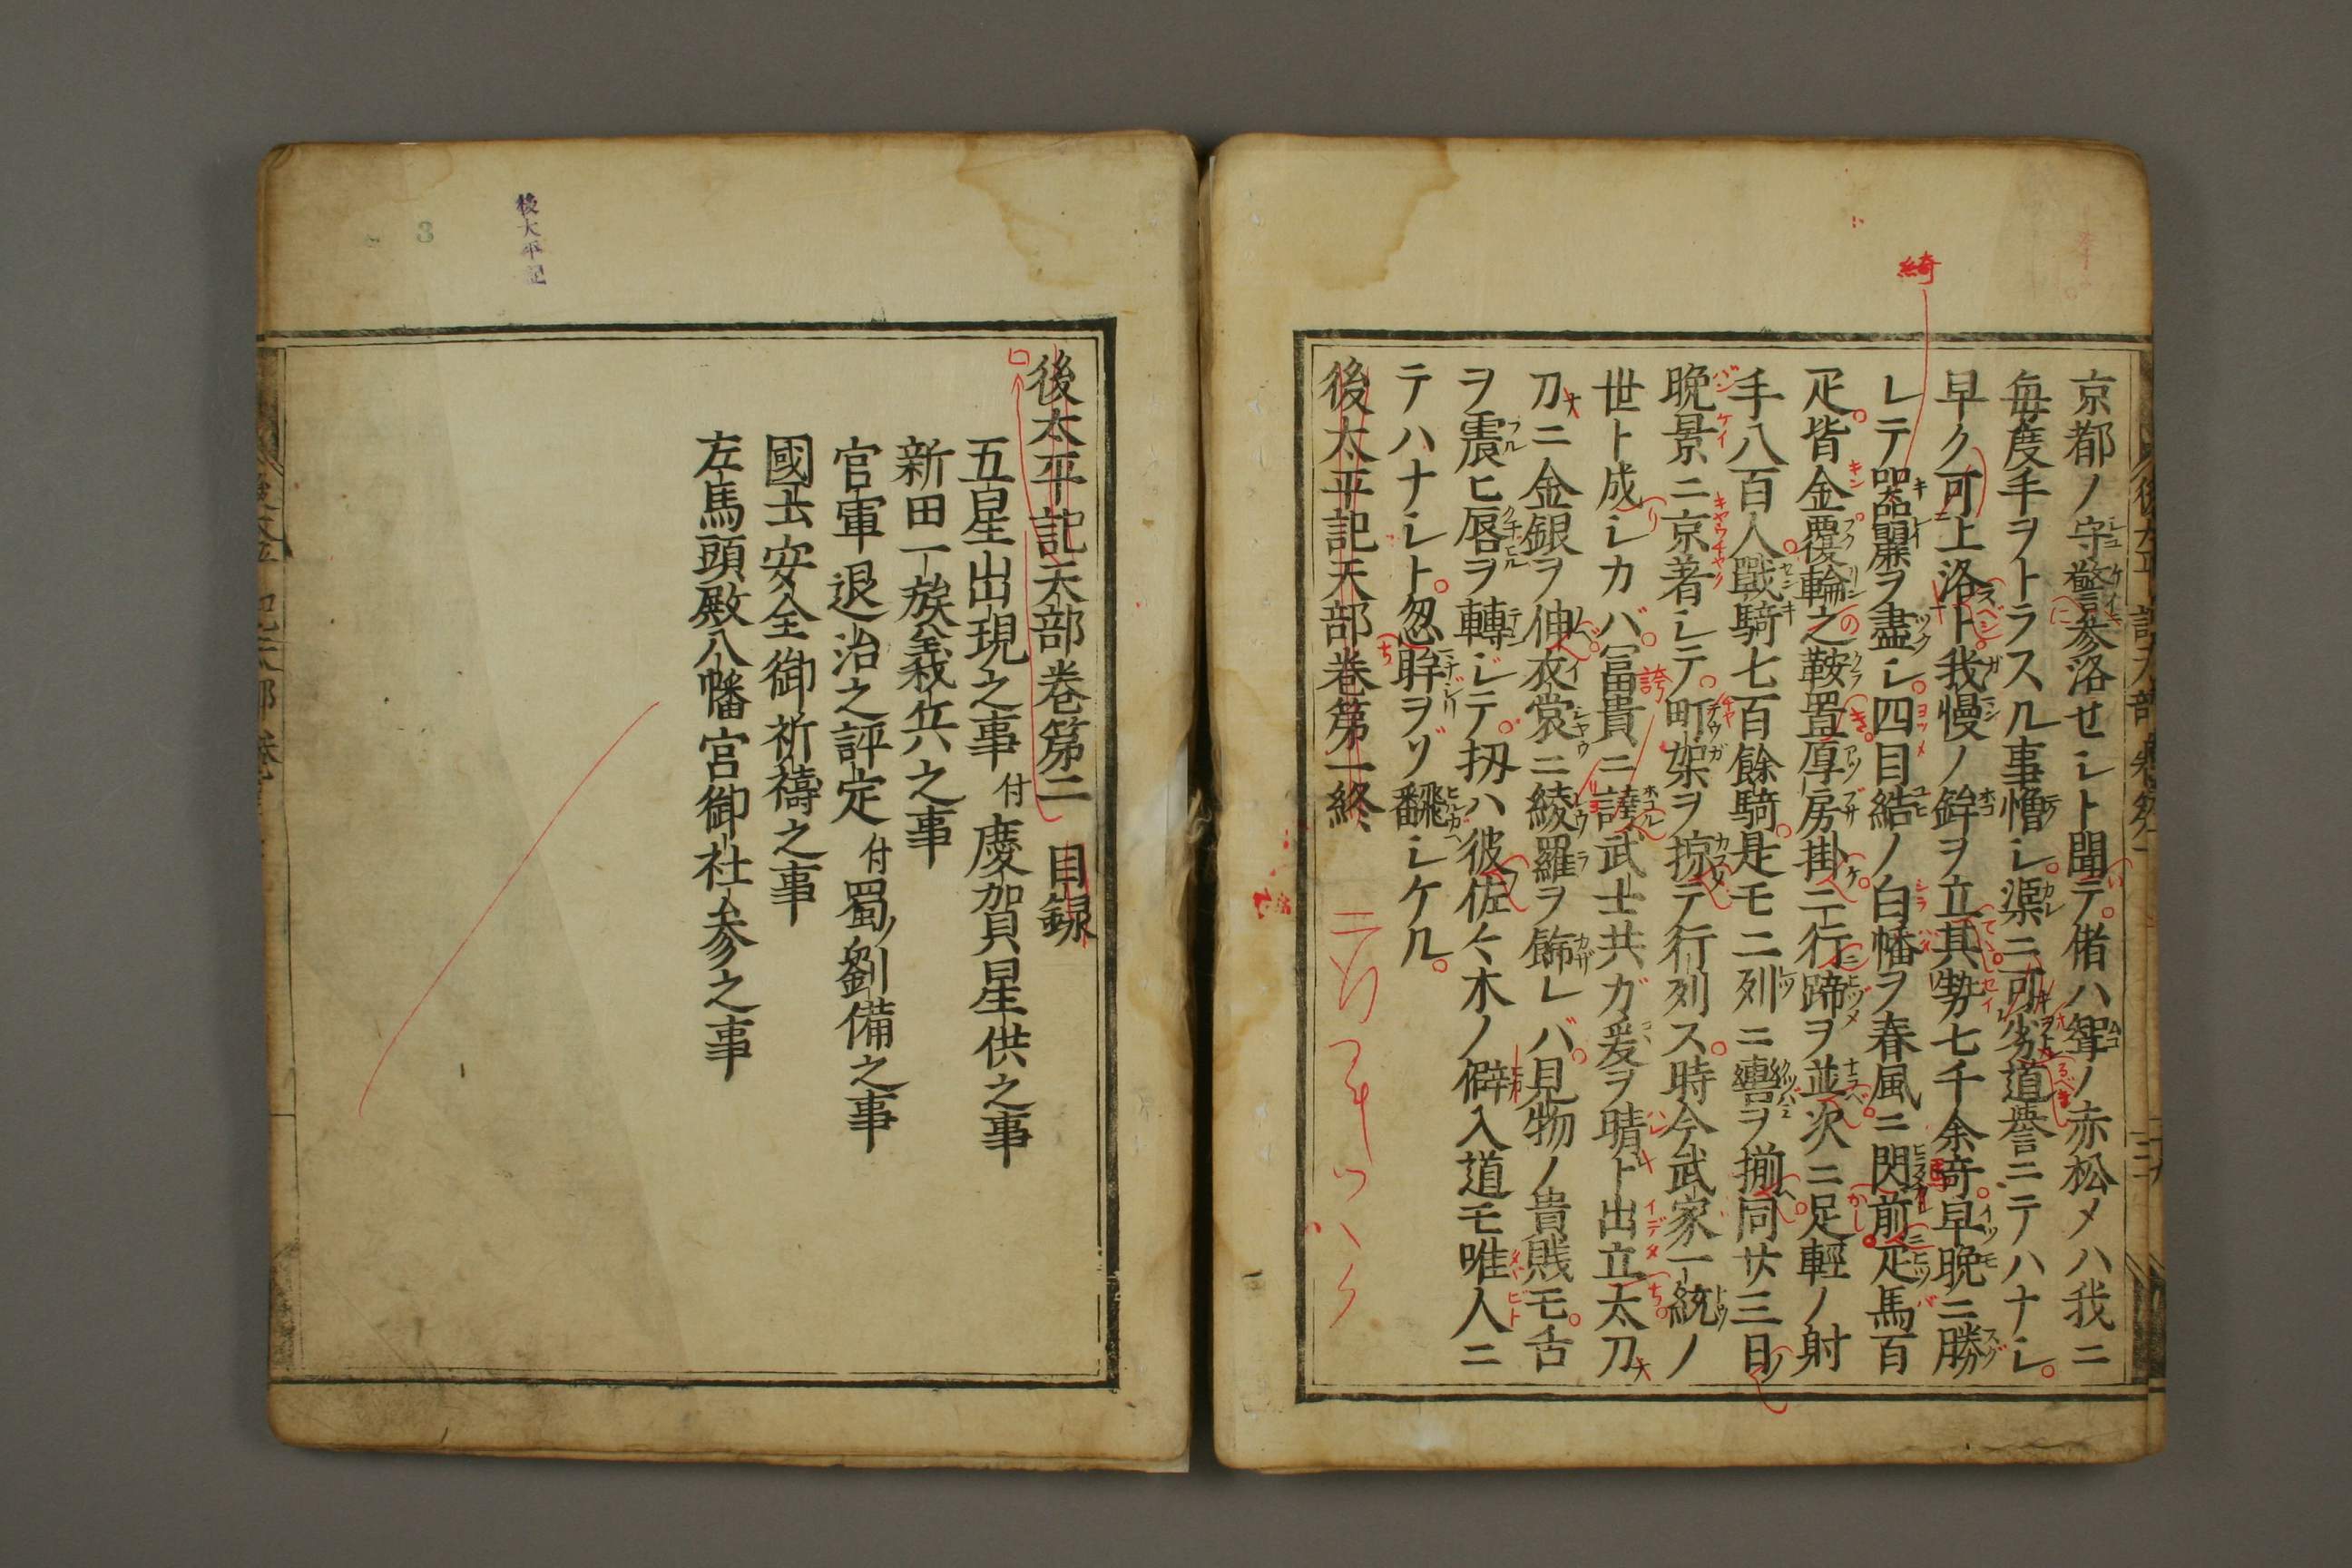 京都ノ守警参洛せシト聞テ偖ハ聟ノ赤松メハ我ニ
毎度手ヲトラスル事憎シ渠ニ可劣道誉ニテハナシ
早ク可上洛ト我慢ノ鉾ヲ立其勢七千余奇早晩ニ勝
レテ器麗ヲ盡シ四目結ノ白幡ヲ春風ニ閃前疋馬百
疋皆金覆輪之鞍置厚房掛二行蹄ヲ並次ニ足輕ノ射
手八百人戰騎七百餘騎是モ二列ニ轡ヲ揃同廿三日
晩景ニ京著シテ町架ヲ掠テ行列ス時今武家一統ノ
世ト成シカバ冨貴ニ譁武士共ガ爰ヲ晴ト出立太刀
刀ニ金銀ヲ伸衣裳ニ綾羅ヲ飾レバ見物ノ貴賎モ舌
ヲ震ヒ唇ヲ轉ジテ扨ハ彼佐々木ノ僻入道モ唯人ニ
テハナシト忽眸ヲゾ翻シケル
後太平記天部巻第一終
綺
誇
後太平記
3
後太平記天部巻第二 目録
五星出現之事 付 慶賀星供之事
新田一族義兵之事
官軍退治之評定 付 蜀ノ劉備之事
國土安全御祈祷之事
左馬頭殿八幡宮御社参之事